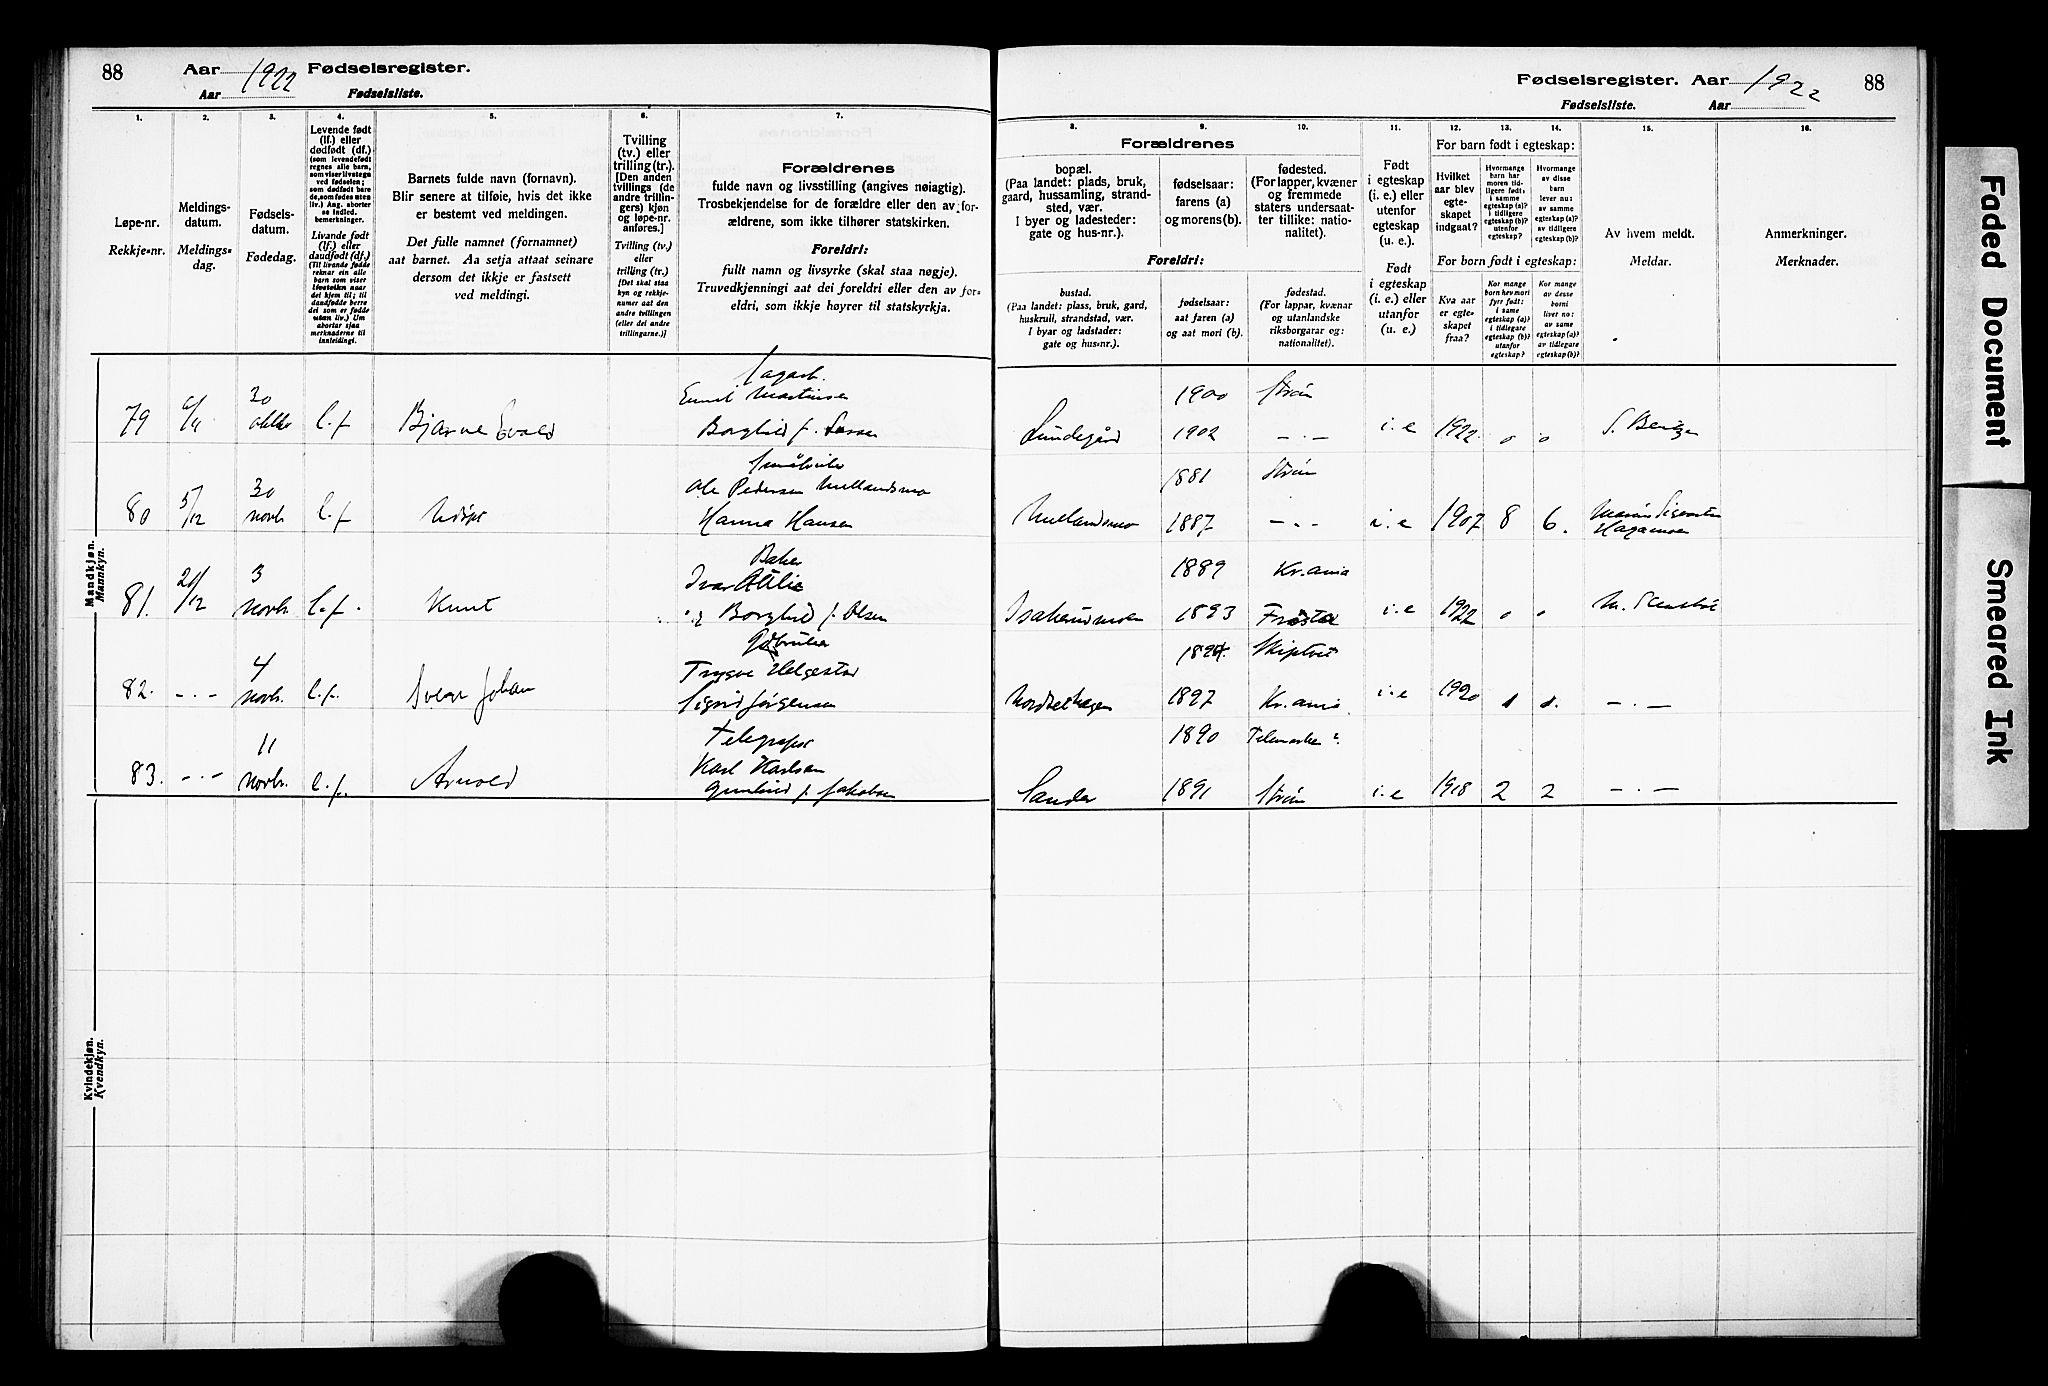 88 Aar 1922 Fødselsregister.
Aar Fødselsliste.
1. 2. 3. 4. 5. 6. 7.
Løpe-nr.
Rekkje=nr.
Meldings-
datum.
Meldings=
dag.
Fødsels-
datum.
Fødedag.
Levende født
(lf.) eller
dødfødt (df.)
(som levendefødt
regnes alle barn,
som viser livstegn
ved fødselen;
som dødfødt bare
de, som fødes uten
liv.) Ang. aborter
se indled.
bemerkninger.
Livande født
(lf.) eller
daudfødt (df.)
(Til livande fødde
reknar ein alle
barn som viser
livsteikn naar
dei kjem til; til
daudfødde berre
dei som er fødde
utan liv.) Um
abortar sjaa
merknaderne til
innleidingi.
Barnets fulde navn (fornavn).
Blir senere at tilføie, hvis det ikke
er bestemt ved meldingen.
Det fulle namnet (fornamnet)
aat barnet. Aa setja attaat seinare
dersom det ikkje er fastsett
ved meldingi.
Tvilling
(tv.) eller
trilling (tr.).
[Den anden
tvillings (de
andre trillin-
gers) kjøn
og løpe-nr.
anføres.]
Tvilling (tv.)
eller
trilling (tr.)
[Det skal staa
kyn og rekkje-
numer aat den
andre tvillingen
(eller dei andre
trillingarne.)]
Forældrenes
fulde navn og livsstilling (angives nøiagtig).
Trosbekjendelse for de forældre eller den av for-
ældrene, som ikke tilhører statskirken.
Foreldri:
fullt namn og livsyrke (skal staa nøgje).
Truvedkjenningi aat dei foreldri eller den av for=
eldri, som ikkje høyrer til statskyrkja.
Mandkjøn.
Mannkyn.
79 6/11 30 oktbr l.f Bjarne Evald
Sagarb.
Emil Martinsen
Borghild f. Larsen
80 5/12 30 novb. l.f Udøpt
Småbruker
Ole Pedersen Mellandsmo
Hanna Hansen
81. 20/12 3 novb. l.f. Knut
Baker
Ivar Atlie
og Borghild f. Olsen
82. -.- 4 novb. l.f. Svein Johan
Gdbruker
Trygve Helgestad
Sigrid Jørgensen
83. -.- 11 novbr. l.f. Arnold
Telegrafist
Karl Karlsen
Gunhild f. Jakobsen
Kvindekjøn.
Kvendkyn.
Fødselsregister. Aar 1922 88
Fødselsliste. Aar
8. 9. 10. 11. 12. 13. 14. 15. 16.
Forældrenes
bopæl.
(Paa landet: plads, bruk,
gaard, hussamling, strand-
sted, vær.
I byer og ladesteder:
gate og hus-nr.).
fødselsaar:
farens (a)
og morens (b).
fødested.
(For lapper, kvæner
og fremmede
staters undersaat-
ter tillike: natio-
nalitet).
Foreldri:
bustad.
(Paa landet: plass, bruk, gard,
huskrull, strandstad, vær.
I byar og ladstader:
gate og hus=nr.).
fødselsaar:
aat faren (a)
og aat mori (b).
fødestad.
(For lappar, kvænar
og utanlandske
riksborgarar og:
nationalitet).
Født
i egteskap
(i. e.) eller
utenfor
egteskap
(u. e.).
Født
i egteskap
(i. e.) eller
utanfor
(u. e.)
For barn født i egteskap:
Hvilket
aar blev
egte-
skapet
indgaat?
Hvormange
barn har
moren tid-
ligere født:
i samme
egteskap (a)?
i tidligere
egteskap (b)?
utenfor
egteskap?
Hvormange
av disse
barn
lever nu:
av samme
egteskap (a)?
av tidligere
egteskap (b)?
For born født i egteskap:
Kva aar
er egte-
skapet
fraa?
Kor mange
born hev mori
fyrr født:
i same
egteskap (a)?
i tidlegare
egteskap (b)?
utanfor
egteskap?
Kor mange
av desse
borni
liver no:
av same
egteskap (a)?
av tidlegare
egteskap (b)?
Av hvem meldt.
Meldar.
Anmerkninger.
Merknader.
1900 Strøm
Lundegård 1902 -.- i.e 1922 0 0 S. Berg
1881 Strøm
Mellandsmo 1887 -.- i.e 1907 8 6.
Hagamoen
1889 Kr.ania
1893 Frosta i.e 1922 0 0
Skiptvet
1897 Kr.ania i.e 1920 1 1. -.-
1890 Telemarken ?
Sander 1891 Strøm i.e 1918 2 2 -.-
Faded Document
Smeared Ink